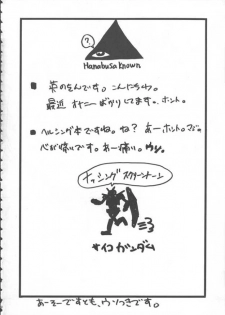 ?
Hanabusa Known
■ 英のそんです。こんにちわ。
最近 オナニーばかりしてます。ホント。
■ ヘルシング本ですね。ね? あーホント。マジ。
心が痛いです。あー痛い。ウソ。
ナッシング スクリーントーン
サイコガンダム
あーそーですとも、ウソつきです。